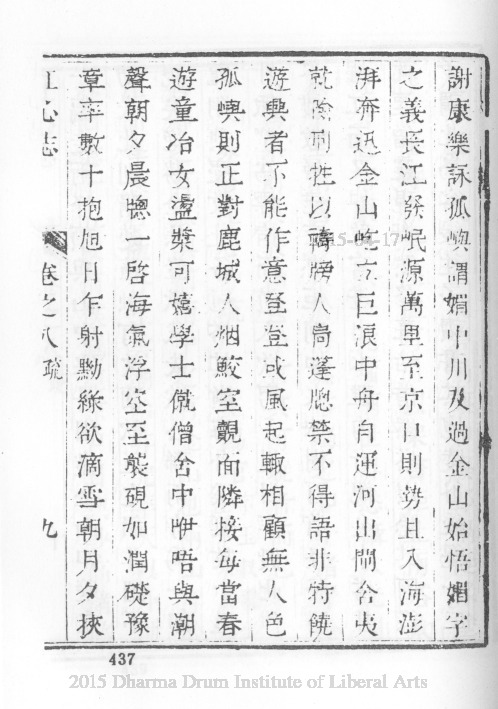 謝康樂詠孤嶼謂媚中川及過金山始悟媚字
之義長江發岷源萬里至京口則勢且入海澎
湃奔迅金山屹立巨浪中舟自運河出閘舍夷
就險刑牲以禱榜人尚蓬窻禁不得語非特饒
遊興者不能作意登登或風起輒相顧無人色
孤嶼則正對鹿城人烟鮫室覿面隣接每當春
遊童冶女盪槳可嬉學士僦僧舍中咿唔與潮
聲朝夕晨牕一啓海氣浮空至襲硯如潤礎豫
章率數十抱旭日乍射黝綠欲滴雪朝月夕挾
江心志 卷之八疏 九
437
2015 Dharma Drum Institute of Liberal Arts